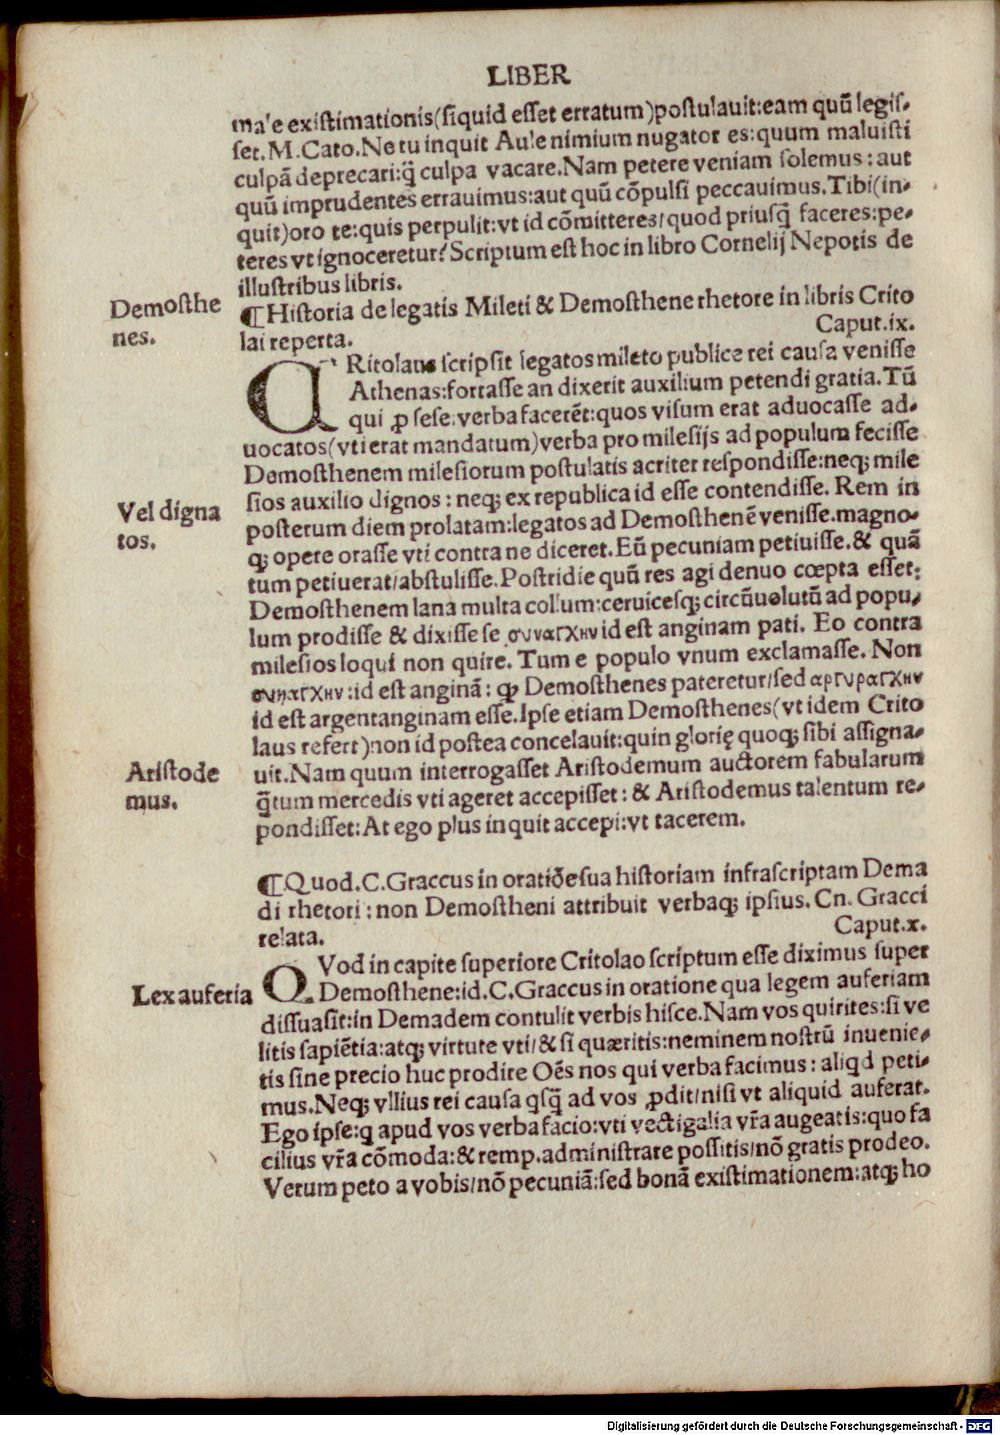 LIBER
male existimationis(siquid esset erratum)postulauit:eam quū legis-
set.M.Cato.Ne tu inquit Aule nimium nugator es:quum maluisti
culpā deprecari:q̄ culpa vacare.Nam petere veniam solemus:aut
quū imprudentes errauimus:aut quū cōpulsi peccauimus.Tibi(in-
quit)oro te:quis perpulit:vt id cōmitteres/quod priusq̄ faceres:pe-
teres vt ignoceretur?Scriptum est hoc in libro Cornelij Nepotis de
illustribus libris.
Demosthe
nes.
¶Historia de legatis Mileti & Demosthene rhetore in libris Crito
lai reperta. Caput.ix.
CRitolaus scripsit legatos mileto publice rei causa venisse
Athenas:fortasse an dixerit auxilium petendi gratia.Tū
qui ꝓ sese:verba facerēt:quos visum erat aduocasse ad-
uocatos(vti erat mandatum)verba pro milesijs ad populum fecisse
Demosthenem milesiorum postulatis acriter respondisse:neqꝫ mile
sios auxilio dignos:neqꝫ ex republica id esse contendisse.Rem in
Vel digna
tos.
posterum diem prolatam:legatos ad Demosthenē venisse.magno-
qꝫ opere orasse vti contra ne diceret.Eū pecuniam petiuisse.& quā
tum petiuerat/abstulisse.Postridie quū res agi denuo cœpta esset:
Demosthenem lana multa collum:ceruicesqꝫ circūuolutū ad popu-
lum prodisse & dixisse se συναγχην id est anginam pati. Eo contra
milesios loqui non quire. Tum e populo vnum exclamasse. Non
συναγχην:id est anginā:qꝫ Demosthenes pateretur/sed αργυραγχην
id est argentanginam esse.Ipse etiam Demosthenes(vt idem Crito
laus refert)non id postea concelauit:quin glorię quoqꝫ sibi assigna-
Aristode
mus.
uit.Nam quum interrogasset Aristodemum auctorem fabularum
q̄tum mercedis vti ageret accepisset:& Aristodemus talentum re-
pondisset:At ego plus inquit accepi:vt tacerem.
¶Quod.C.Graccus in oratiōe sua historiam infrascriptam Dema
di rhetori:non Demostheni attribuit verbaqꝫ ipsius.Cn.Gracci
relata. Caput.x.
QVod in capite superiore Critolao scriptum esse diximus super
Lex auferia
Demosthene:id.C.Graccus in oratione qua legem auferiam
dissuasit:in Demadem contulit verbis hisce.Nam vos quirites:si ve
litis sapiētia:atqꝫ virtute vti/& si quæritis:neminem nostrū inuenie-
tis sine precio huc prodire Oēs nos qui verba facimus:aliqd peti-
mus.Neqꝫ vllius rei causa qsq̄ ad vos ꝓdit/nisi vt aliquid auferat.
Ego ipse:q apud vos verba facio:vti vectigalia vr̄a augeatis:quo fa
cilius vr̄a cōmoda:& remp.administrare possitis/nō gratis prodeo.
Verum peto a vobis/nō pecuniā:sed bonā existimationem:atqꝫ ho
Digitalisierung gefördert durch die Deutsche Forschungsgemeinschaft - DFG